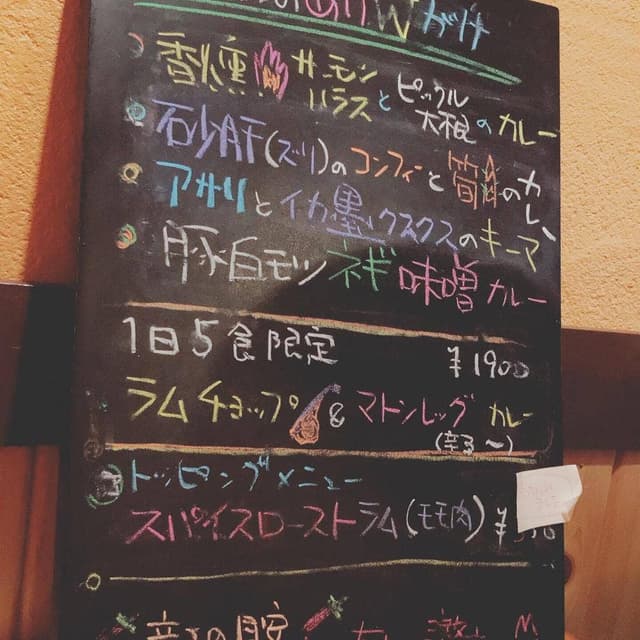 あり Wガリナ
香燻 サーモンハラスとピックル大根のカレー
砂肝(ズリ)のコンフィーと筍のカレー
アサリとイカ墨クスクスのキーマ
豚白モツネギ味噌カレー
1日5食限定 ¥1900
ラムチョップ & マトンレッグ カレー
(辛3〜)
トッピングメニュー
スパイスローストラム(モモ肉) ¥
辛さの目安